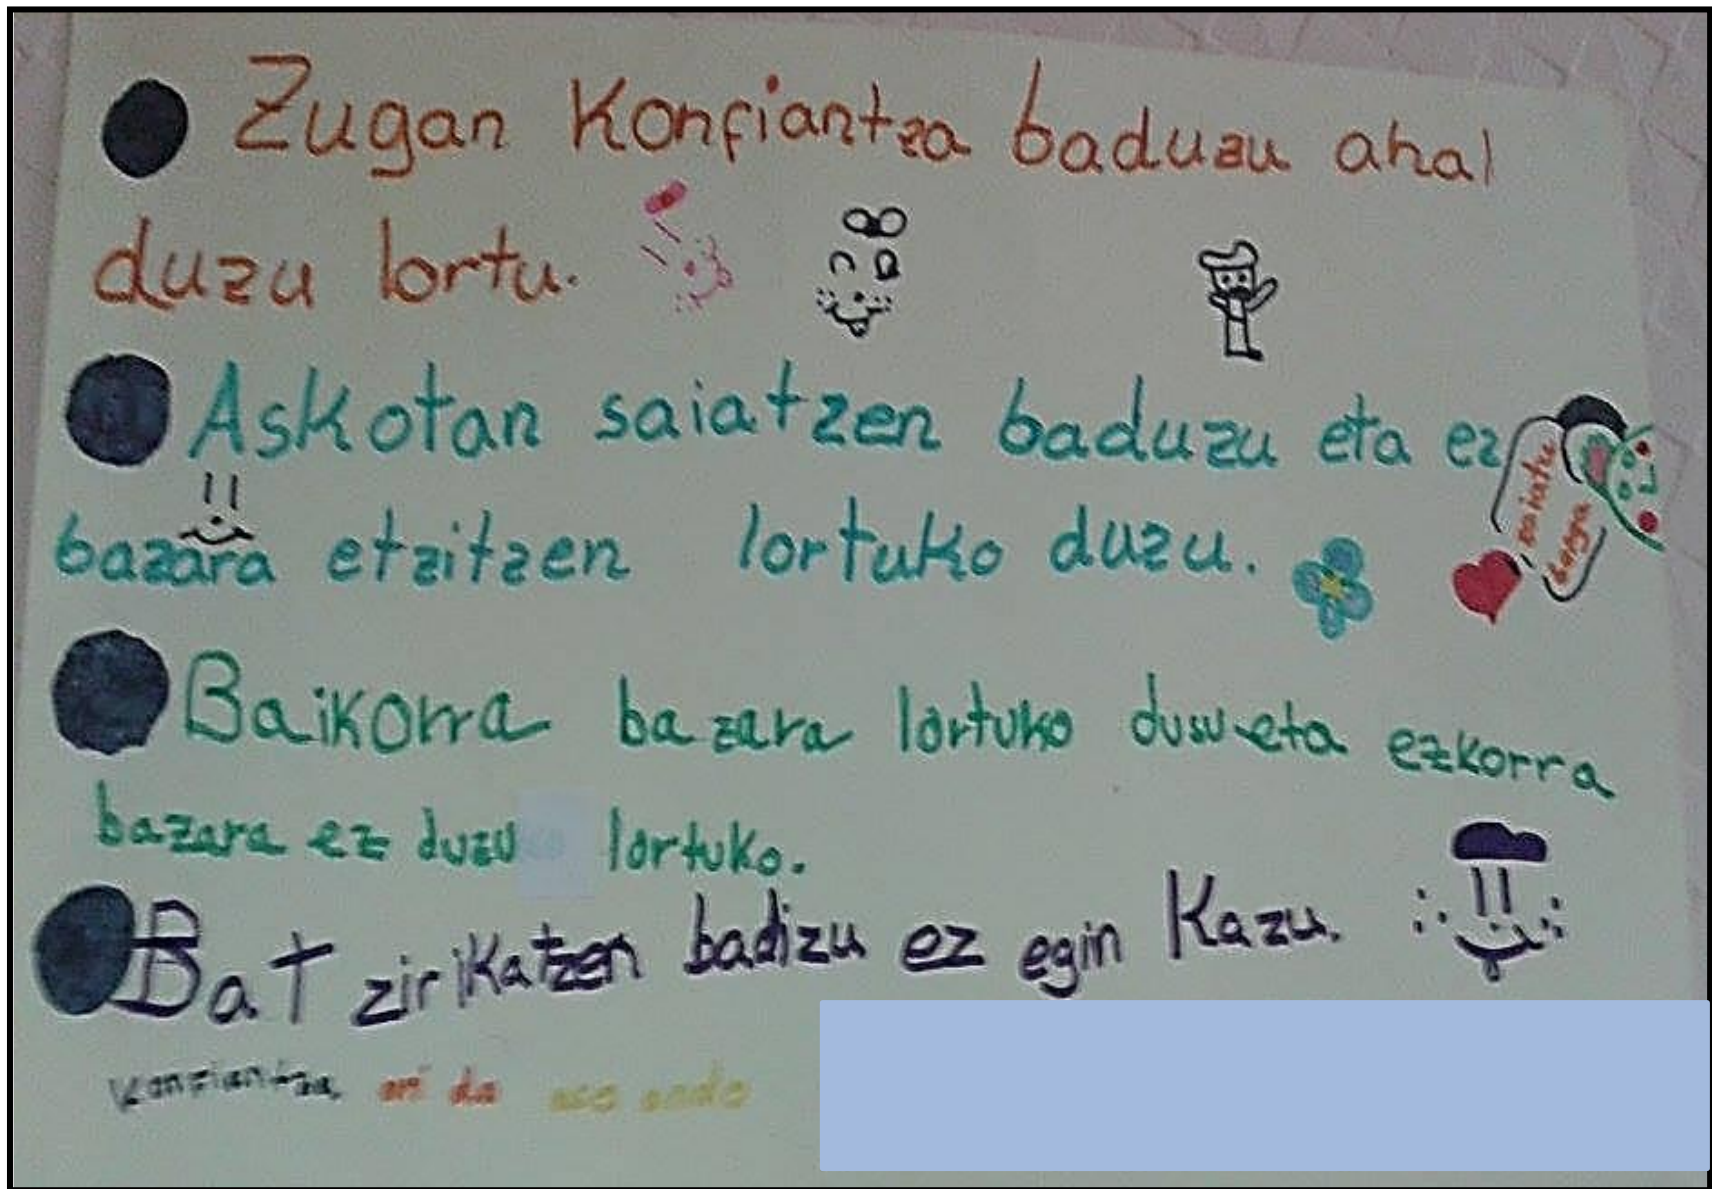 Zugan Konfiantza baduzu ahal
duzu lortu.
Askotan saiatzen baduzu eta ez
bazara etzitzen lortuko duzu.
saiatu
Baikorra bazara lortuko dusu eta ezkorra
bazara ez duzu lortuko.
Bat zirikatzen badizu ez egin Kazu.
Konfiantza ori da